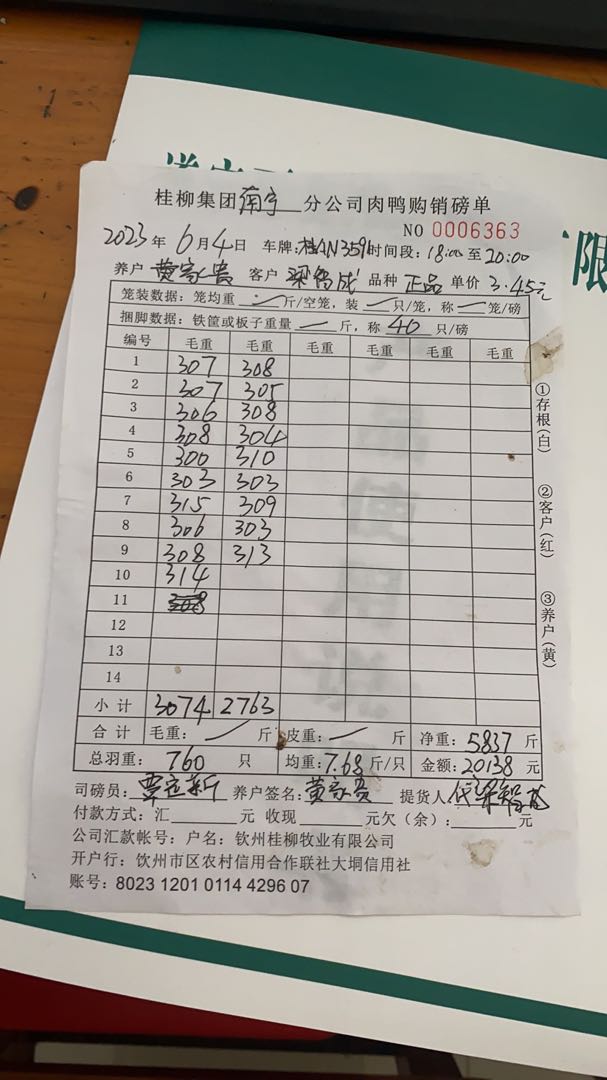 限
桂柳集团南宁分公司肉鸭购销磅单
NO 0006363
2023年6月4日 车牌:桂AN3591时间段:18:00至20:00
养户 黄家贵 客户 梁 成 品种 正品 单价 3.45元
笼装数据:笼均重 / 斤/空笼,装 / 只/笼,称 / 笼/磅
捆脚数据:铁筐或板子重量 / 斤,称 40 只/磅
编号 毛重 毛重 毛重 毛重 毛重 毛重
1 307 308
2 307 305
3 306 308
4 308 304
5 300 310
6 303 303
7 315 309
8 306 303
9 308 313
10 314
11 308
12
13
14
小计 3074 2763
合计 毛重: / 斤 皮重: / 斤 净重:5837斤
总羽重: 760 只 均重:7.68斤/只 金额:20138元
司磅员: 养户签名:黄家贵 提货人
付款方式:汇 元 收现 元欠(余): 元
公司汇款帐号:户名:钦州桂柳牧业有限公司
开户行:钦州市区农村信用合作联社大垌信用社
账号:8023 1201 0114 4296 07
①存根(白) ②客户(红) ③养户(黄)